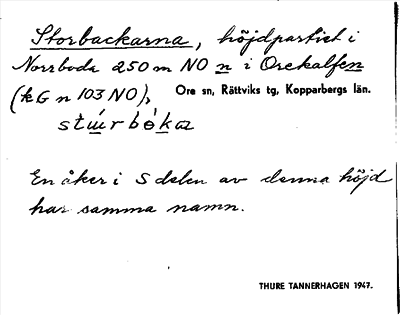 Storbackarna, höjdpartiet i
Norrboda 250 m NO n i Orekalfen
(kG n 103 NO), Ore sn, Rättviks tg, Kopparbergs län.
En åker i S delen av denna höjd
har samma namn.
THURE TANNERHAGEN 1947.